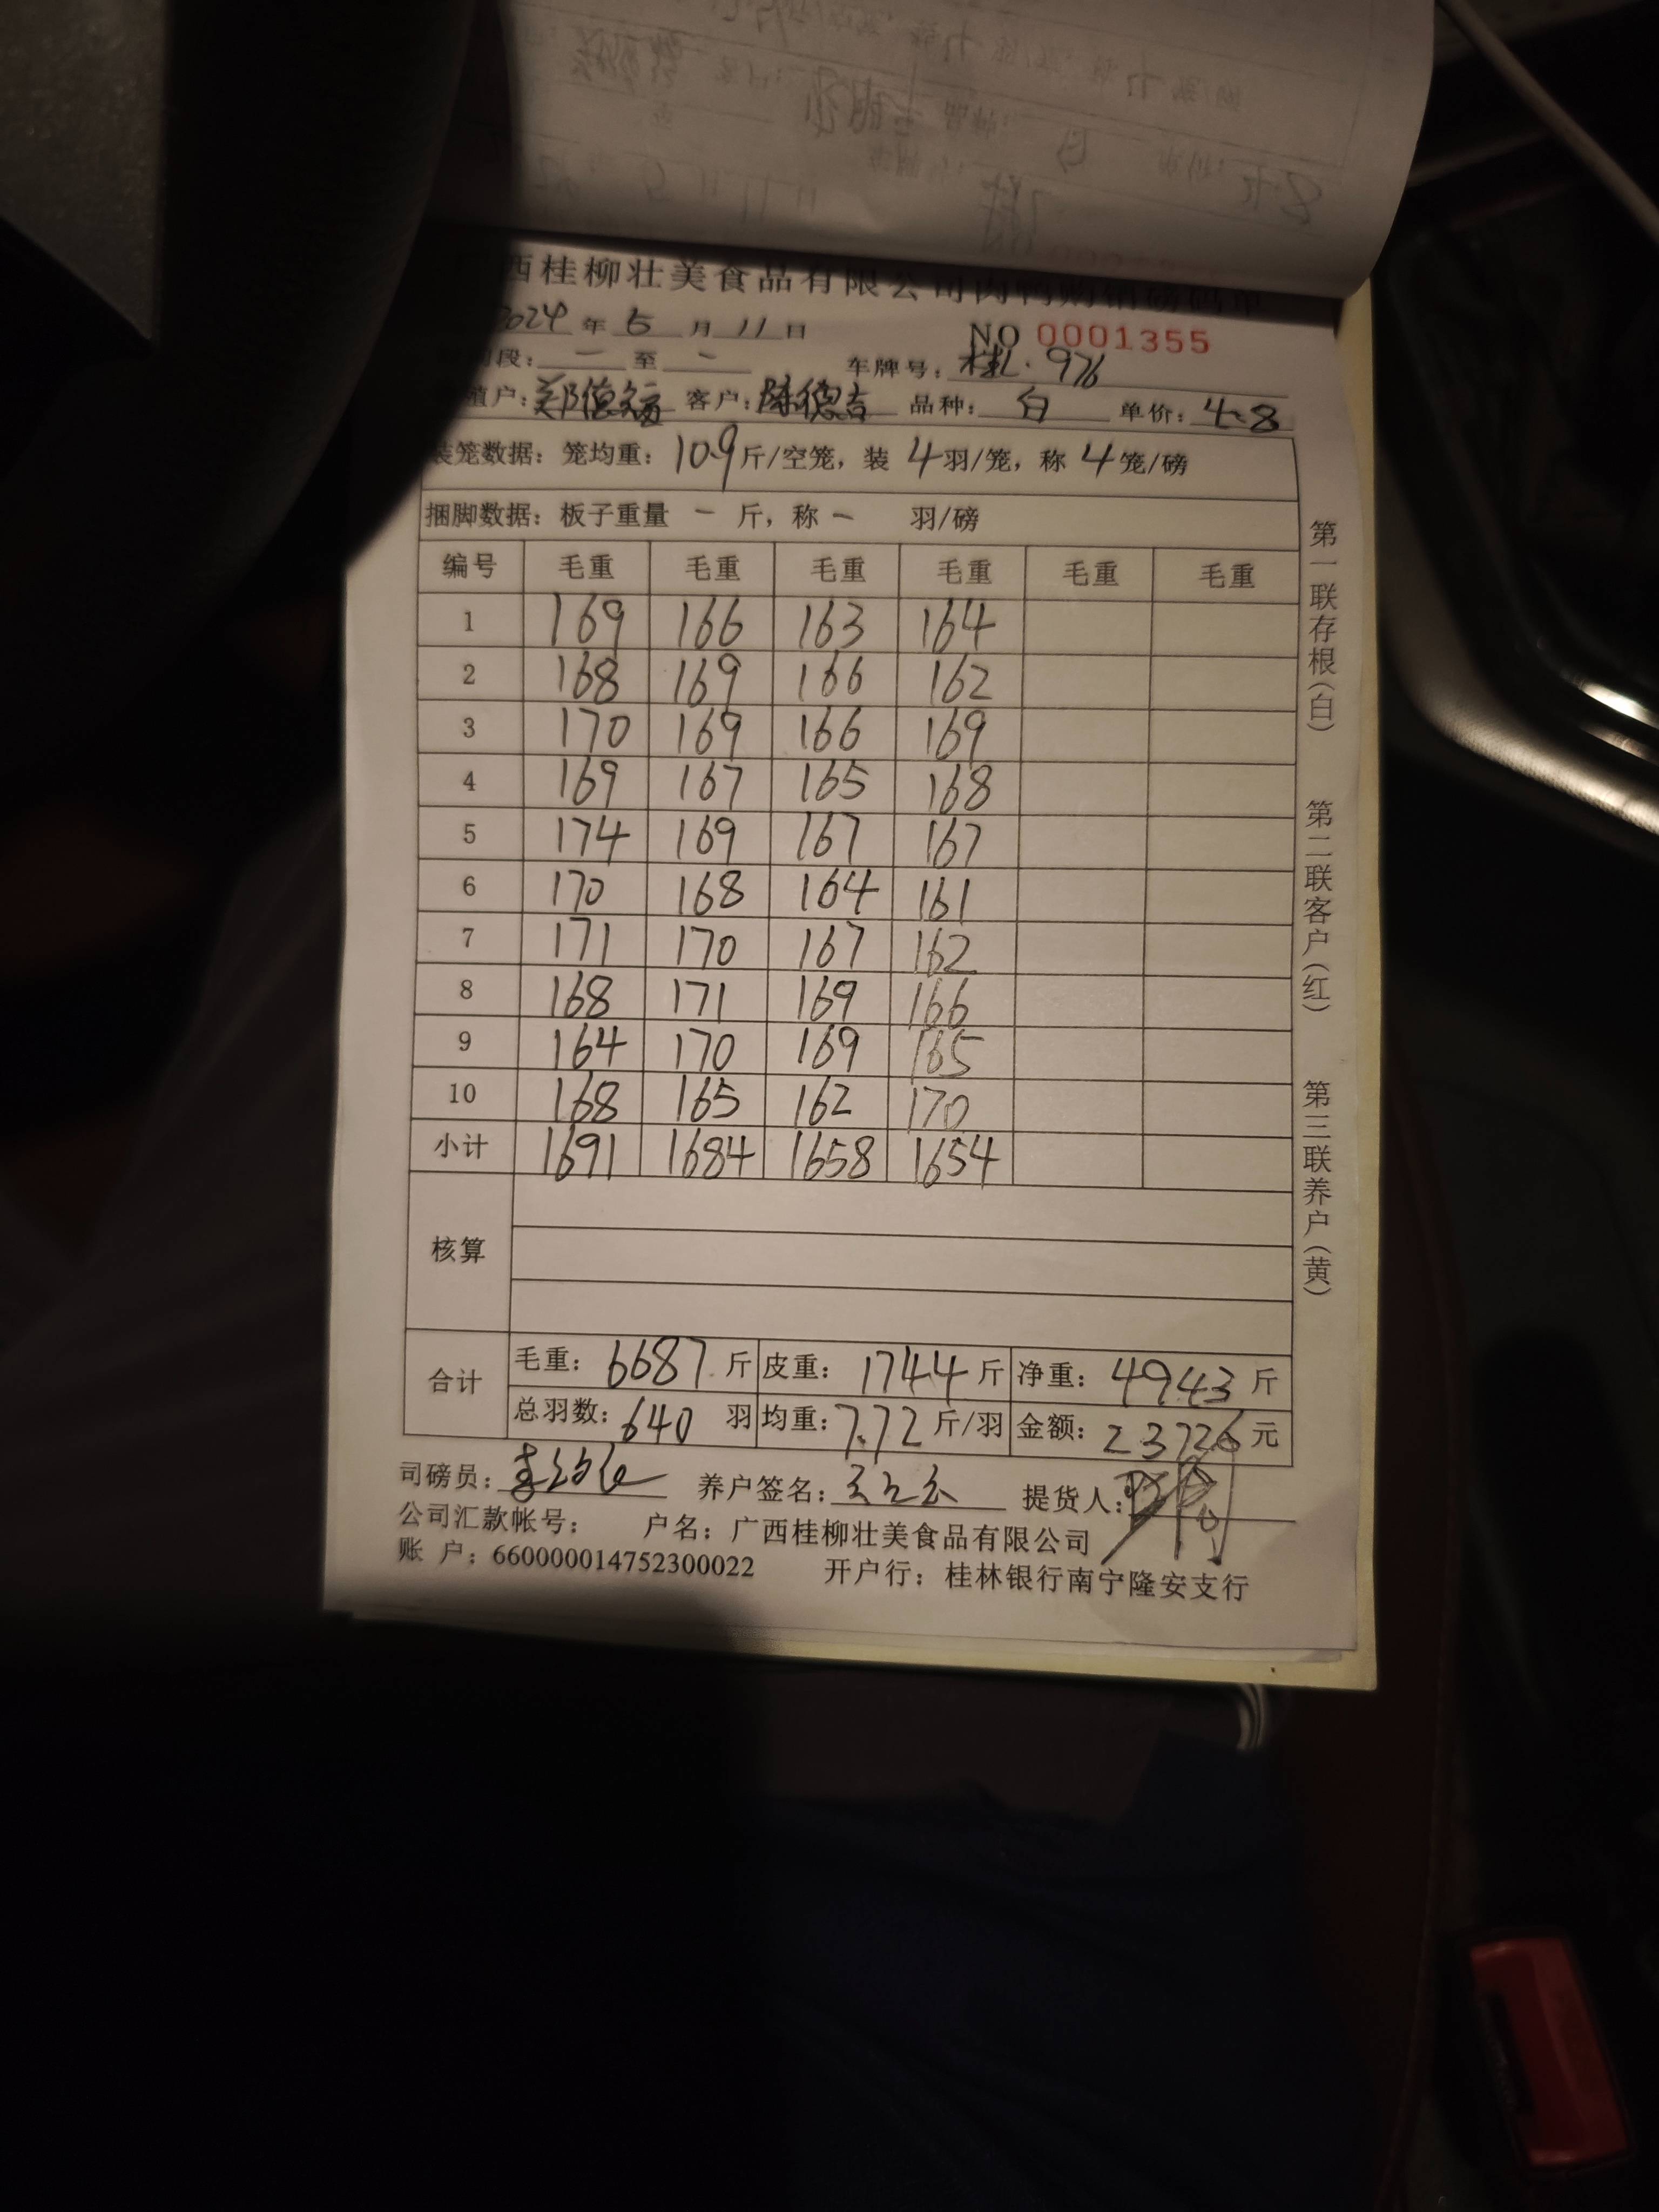 西桂柳壮美食品有限公司肉鸭购销磅码单
2024 年 5 月 11 日 NO 0001355
段: 一 至 一 车牌号: 桂L·976
殖户: 郑德 客户: 陈德吉 品种: 白 单价: 4.8
装笼数据: 笼均重: 10.9 斤/空笼, 装 4 羽/笼, 称 4 笼/磅
捆脚数据: 板子重量 一 斤, 称 一 羽/磅
编号 毛重 毛重 毛重 毛重 毛重 毛重
1 169 166 163 164
2 168 169 166 162
3 170 169 166 169
4 169 167 165 168
5 174 169 167 167
6 170 168 164 161
7 171 170 167 162
8 168 171 169 166
9 164 170 169 165
10 168 165 162 170
小计 1691 1684 1658 1654
核算
合计 毛重: 6687 斤 皮重: 1744 斤 净重: 4943 斤
总羽数: 640 羽 均重: 7.72 斤/羽 金额: 23726 元
司磅员: 养户签名: 提货人:
公司汇款帐号: 户名: 广西桂柳壮美食品有限公司
账 户: 660000014752300022 开户行: 桂林银行南宁隆安支行
第一联存根(白) 第二联客户(红) 第三联养户(黄)